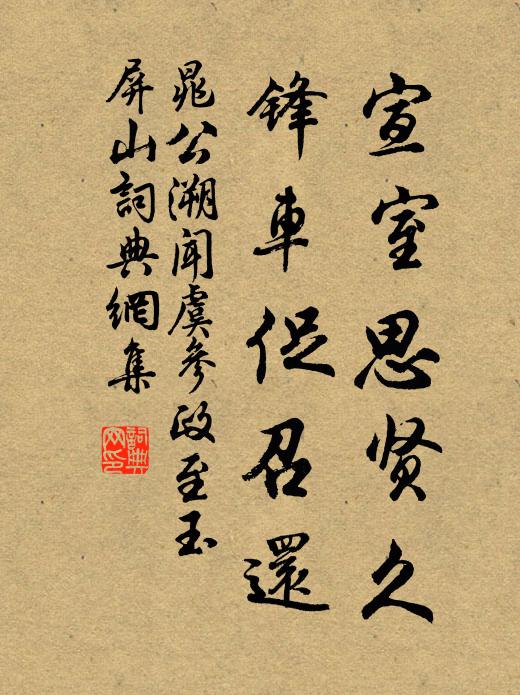 宣室思贤久
锋車促召還
晁公溯闻虞參政至玉
屏山詞典網集
詞典网印